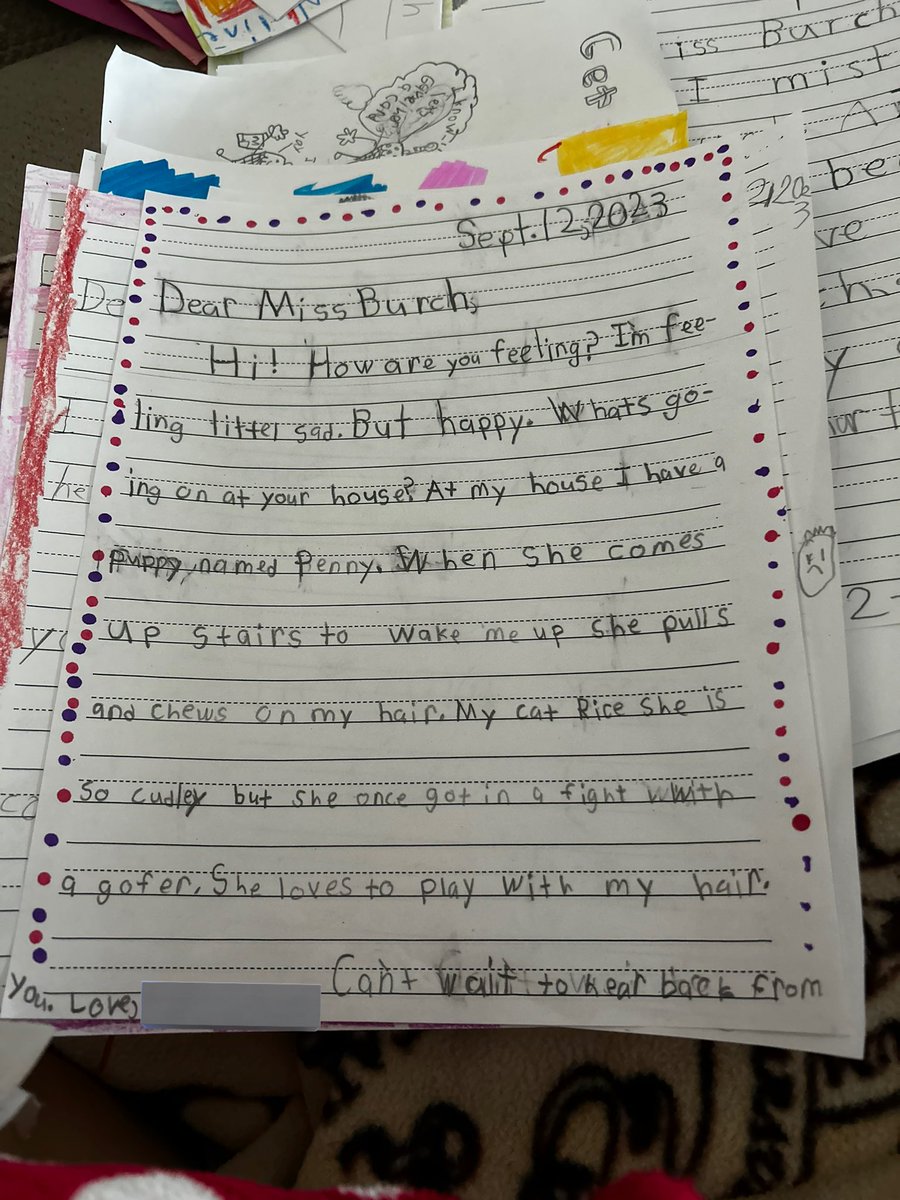 Get
iss Burch
I mist
Sept. 12, 2023
be
ve
Dear Miss Burch,
De
Hi! How are you feeling? I'm fee-
ling littel sad. But happy. Whats go-
I
ing on at your house? At my house I have a
he
puppy, named Penny. When she comes
up stairs to wake me up she pulls
2
and chews on my hair. My cat Rice she is
so cudley but she once got in a fight with
a gofer. She loves to play with my hair.
Can't wait to hear back from
you. Love,